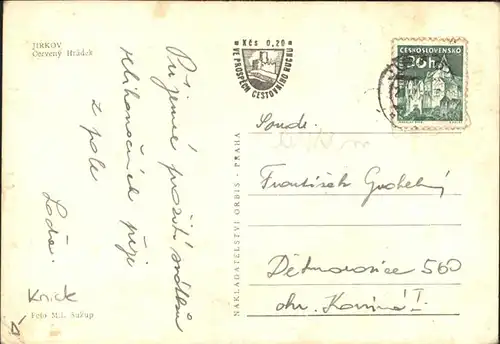 JIRKOV
Červený Hrádek
Příjemné prožití svátků
velikonočních přeje
z pole
Knick
Foto M.L. Sužup
Kčs 0,20
VE PROSPĚCH CESTOVNÍHO RUCHU
NAKLADATELSTVÍ ORBIS - PRAHA
ČESKOSLOVENSKO
30h
Soudr.
František
Dětmarovice 560
okr. Karviná I